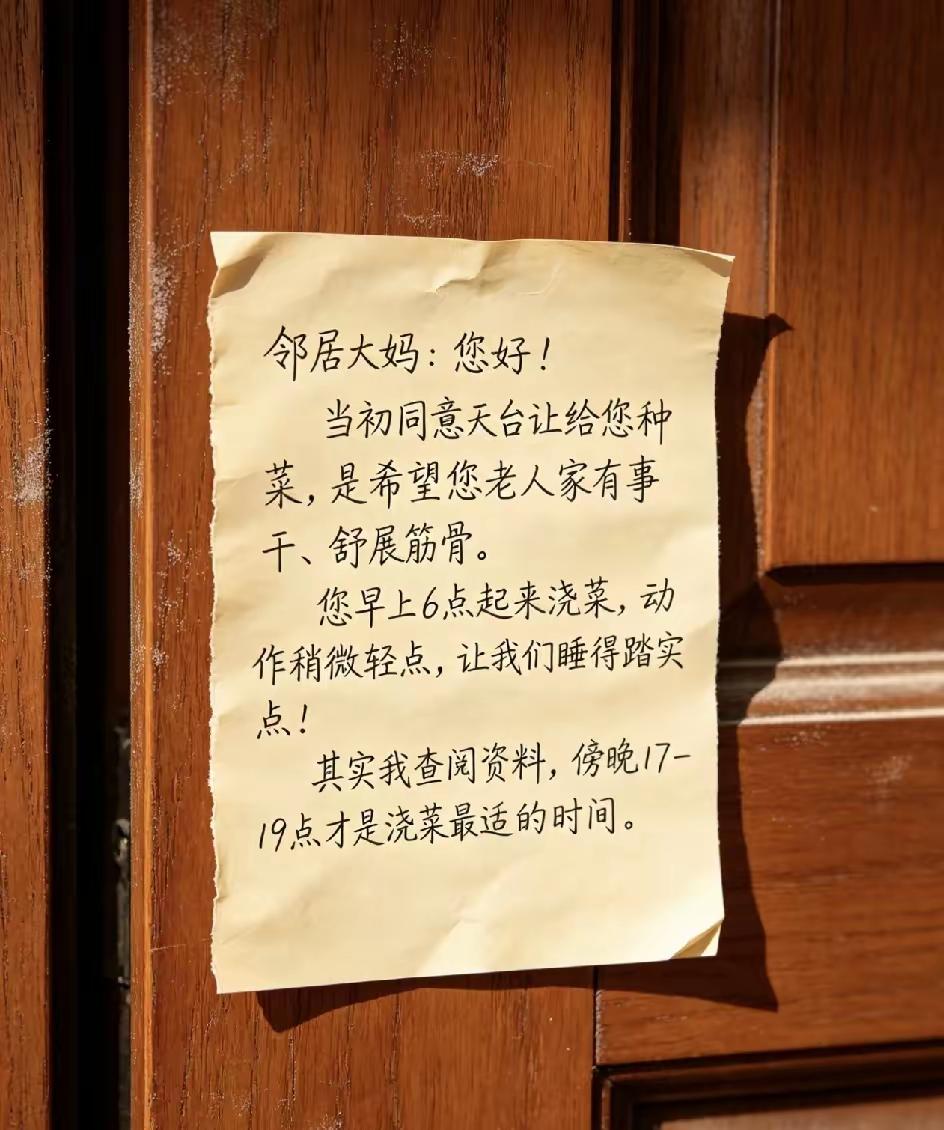 邻居大妈：您好！
当初同意天台让给您种
菜，是希望您老人家有事
干、舒展筋骨。
您早上6点起来浇菜，动
作稍微轻点，让我们睡得踏实
点！
其实我查阅资料，傍晚17-
19点才是浇菜最适的时间。